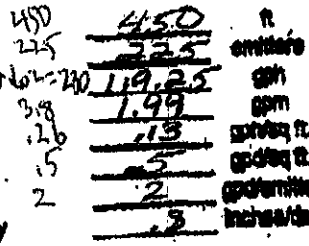 450 450 ft
225 225 emitters
=230 119.25 gph
3.8 1.99 gpm
.26 .13 gph/sq ft
.5 .5 gpd/sq ft
2 2 gpd/emitter
.8 inches/da